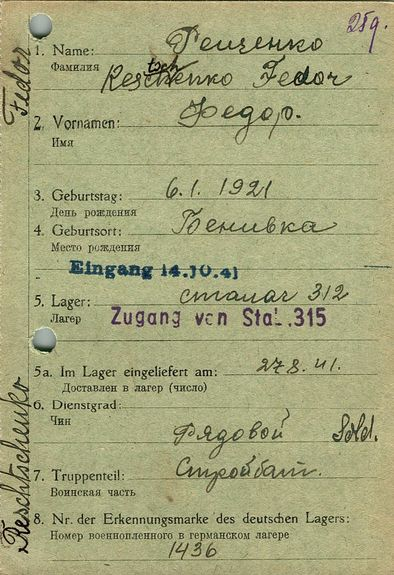 259.
1. Name:
Фамилия
Решченко
Reschenko Fedor
tsch
2. Vornamen:
Имя
Федор.
3. Geburtstag: 6.1.1921
День рождения
4. Geburtsort: Бенивка
Место рождения
Eingang 14.10.41
5. Lager: сталаг 312
Лагер
Zugang von Stal.315
5a. Im Lager eingeliefert am: 27.8.41.
Доставлен в лагер (число)
6. Dienstgrad:
Чин
Рядовой Sold.
7. Truppenteil: Стройбат.
Воинская часть
8. Nr. der Erkennungsmarke des deutschen Lagers:
Номер военнопленного в германском лагере
1436
Fedor
Reschtschenko